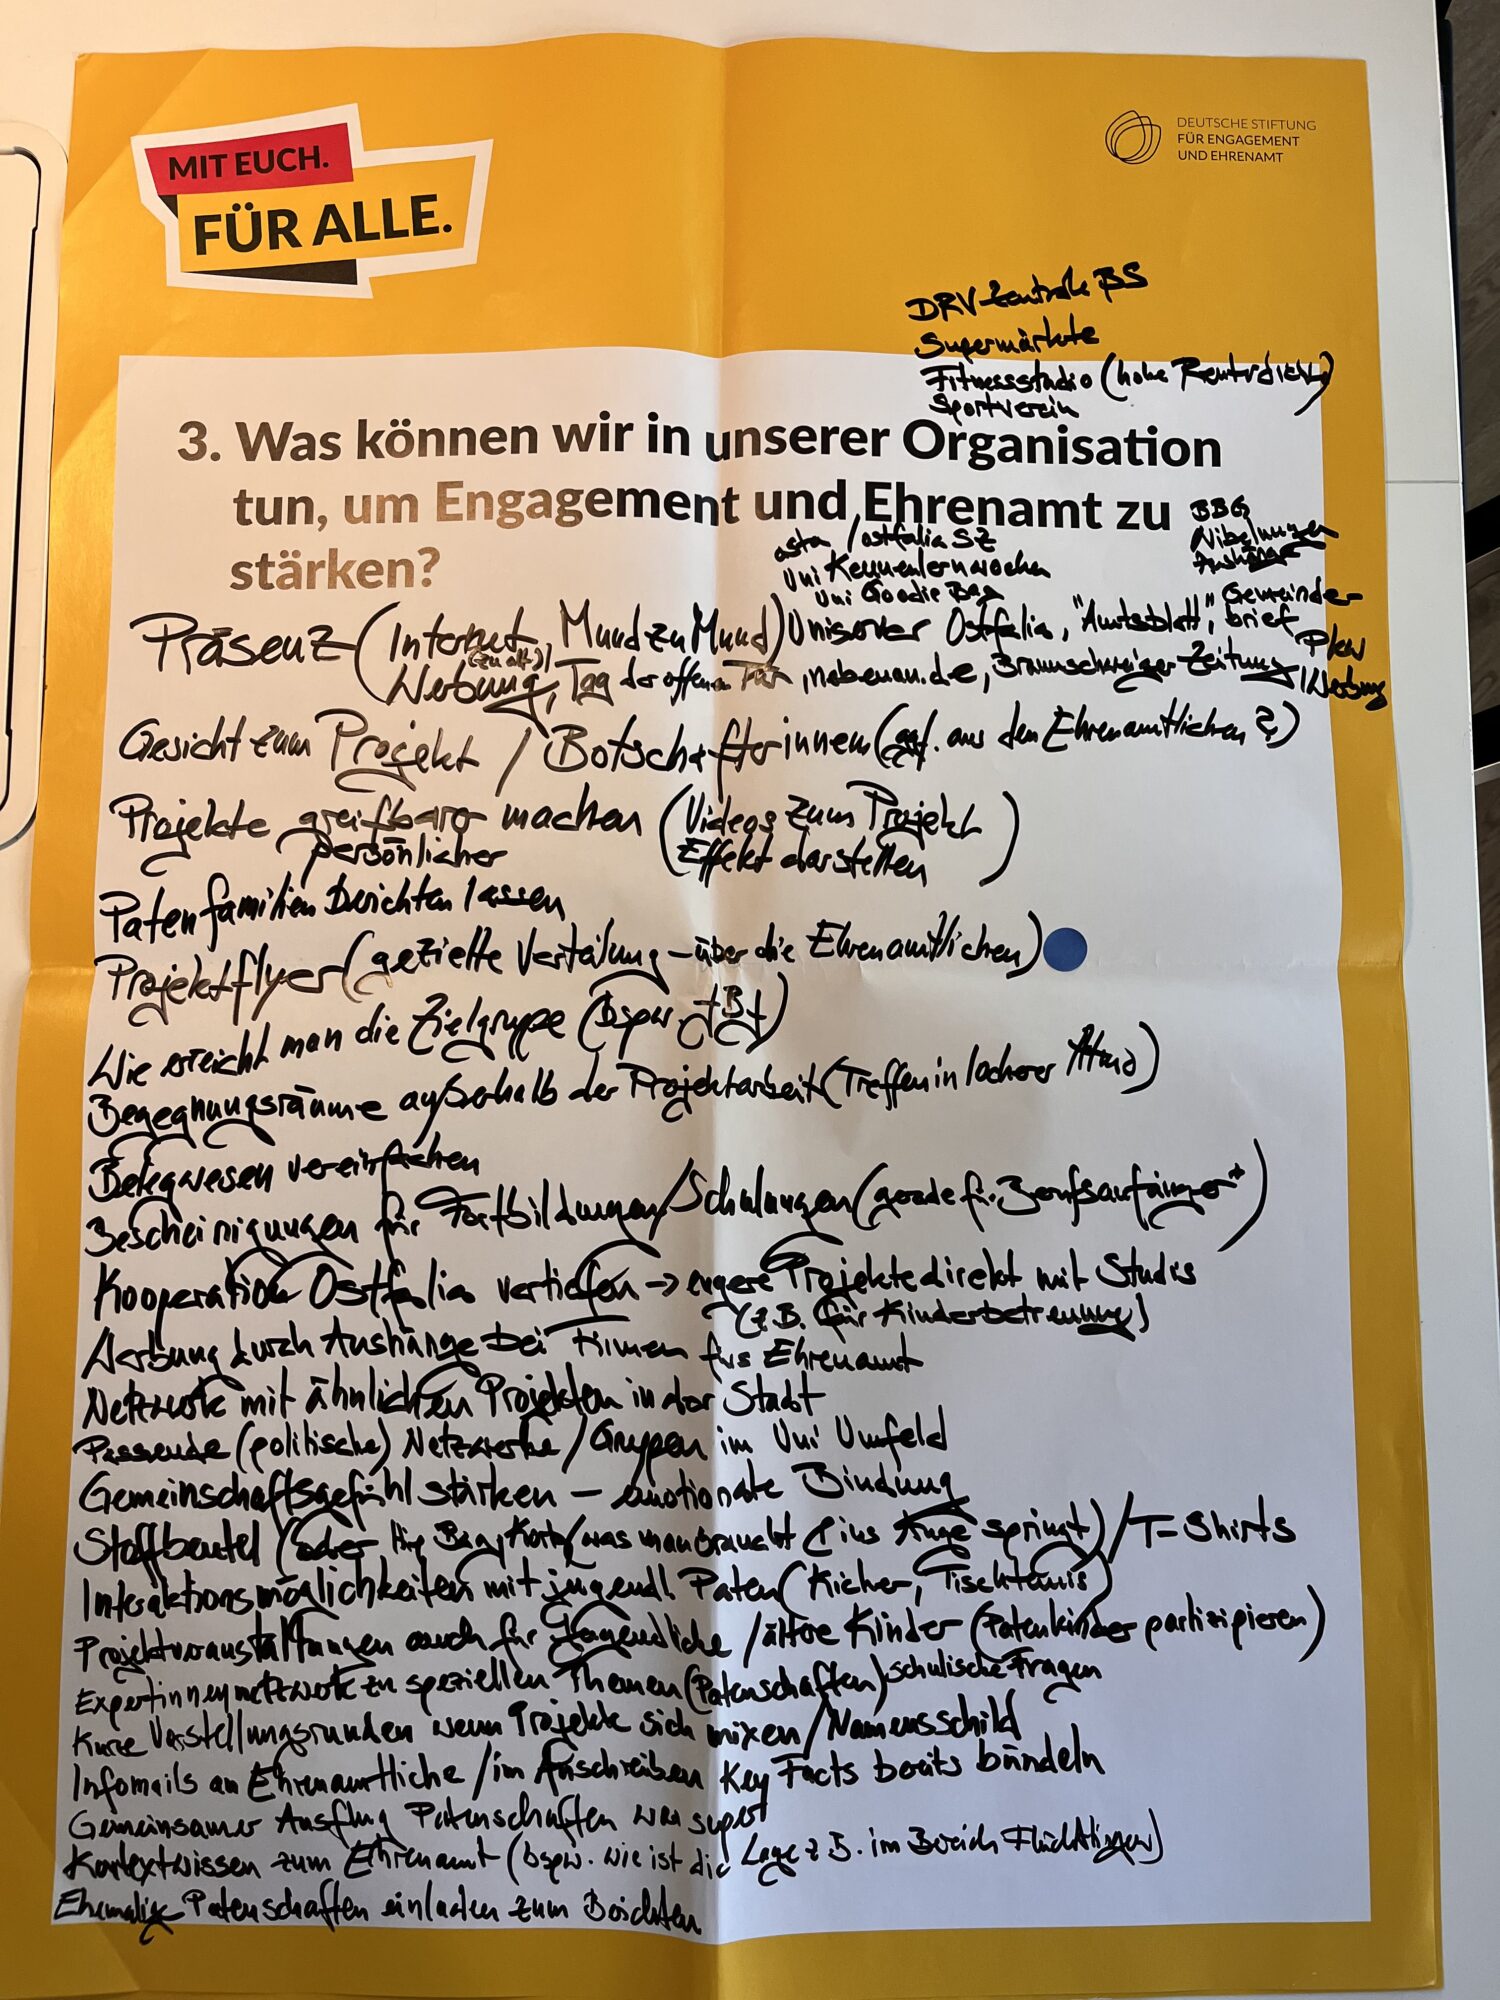 MIT EUCH.
FÜR ALLE.
DEUTSCHE STIFTUNG
FÜR ENGAGEMENT
UND EHRENAMT
DRV-Zentrale BS
Supermärkte
Fitnessstudio (hohe Rentrdicht)
Sportverein
3. Was können wir in unserer Organisation
tun, um Engagement und Ehrenamt zu
stärken?
BBG
Nibelungen
Aushänge
asta / ostfalia SZ
Uni Kennenlernwochen
Uni Goodie Bag
Präsenz (Internet, Mund zu Mund) Uniserver Ostfalia, "Amtsblatt", Gemeinde-
brief
(zu alt)
Werbung, Tag der offenen Tür, nebenan.de, Braunschweiger-Zeitung, Pkw
Werbung
Gesicht zum Projekt / Botschafterinnen (ggf. aus den Ehrenamtlichen?)
Projekte greifbarer machen (Videos zum Projekt
persönlicher Effekt darstellen)
Patenfamilien berichten lassen
Projektflyer (gezielte Verteilung - über die Ehrenamtlichen)
Wie erreicht man die Zielgruppe (bspw. )
Begegnungsräume außerhalb der Projektarbeit (Treffen in lockerer Atmo)
Belegwesen vereinfachen
Bescheinigungen für Fortbildungen/Schulungen (gerade für Berufsanfänger*)
Kooperation Ostfalia vertiefen → engere Projekte direkt mit Studis
(z.B. für Kinderbetreuung)
Werbung durch Aushänge bei Firmen fürs Ehrenamt
Netzwerk mit ähnlichen Projekten in der Stadt
Passende (politische) Netzwerke / Gruppen im Uni Umfeld
Gemeinschaftsgefühl stärken - emotionale Bindung
Stoffbeutel (oder Bag, / was man braucht & ins Auge springt) / T-Shirts
Interaktionsmöglichkeiten mit jugendl. Paten (Kicher, Tischtennis)
Projektveranstaltungen auch für Jugendliche / ältere Kinder (Patenkinder partizipieren)
Expertinnennetzwerk zu speziellen Themen (Patenschaften) schulische Fragen
Kurze Vorstellungsrunden wenn Projekte sich mixen / Namensschild
Infomails an Ehrenamtliche / im Anschreiben Key Facts bereits bündeln
Gemeinsamer Ausflug Patenschaften war super
Kontextwissen zum Ehrenamt (bspw. wie ist die Lage z.B. im Bereich Flüchtlinge)
Ehemalige Patenschaften einladen zum Berichten